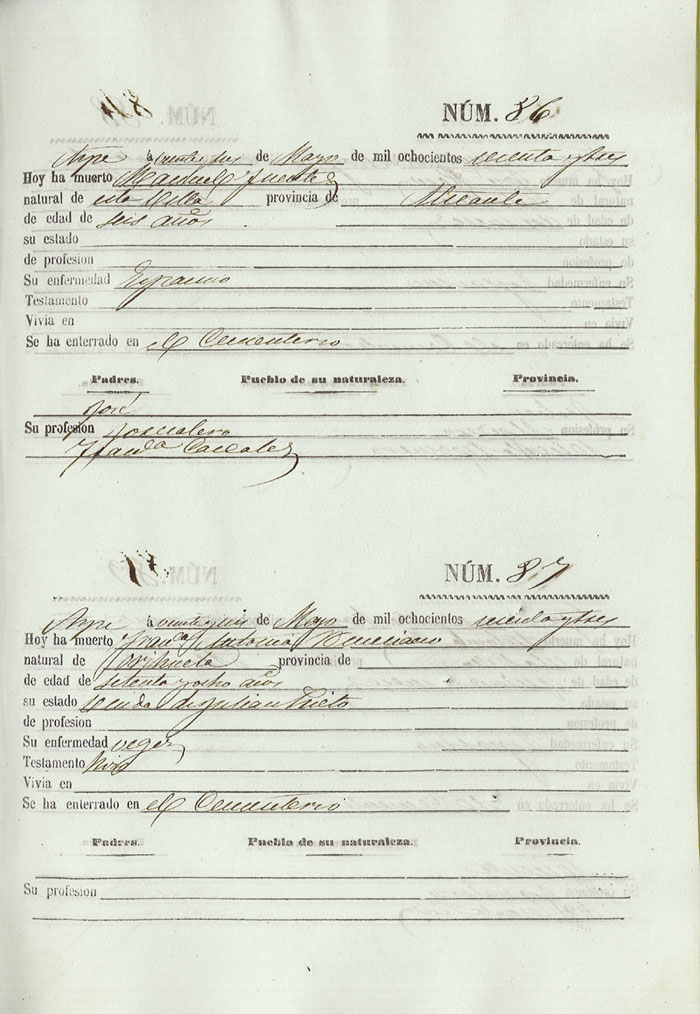 NÚM. 86
Aspe á veinte y seis de Mayo de mil ochocientos sesenta y tres
Hoy ha muerto Manuel Puerto
natural de esta Villa provincia de Alicante
de edad de seis años
su estado
de profesion
Su enfermedad
Testamento
Vivia en
Se ha enterrado en el Cementerio
Padres. Pueblo de su naturaleza. Provincia.
José
Su profesion Jornalero
Franca
NÚM. 87
Aspe á veinte y seis de Mayo de mil ochocientos sesenta y tres
Hoy ha muerto Franca Antonia
natural de Orihuela provincia de
de edad de setenta y ocho años
su estado viuda de Julian Prieto
de profesion
Su enfermedad vegez
Testamento hizo
Vivia en
Se ha enterrado en el Cementerio
Padres. Pueblo de su naturaleza. Provincia.
Su profesion